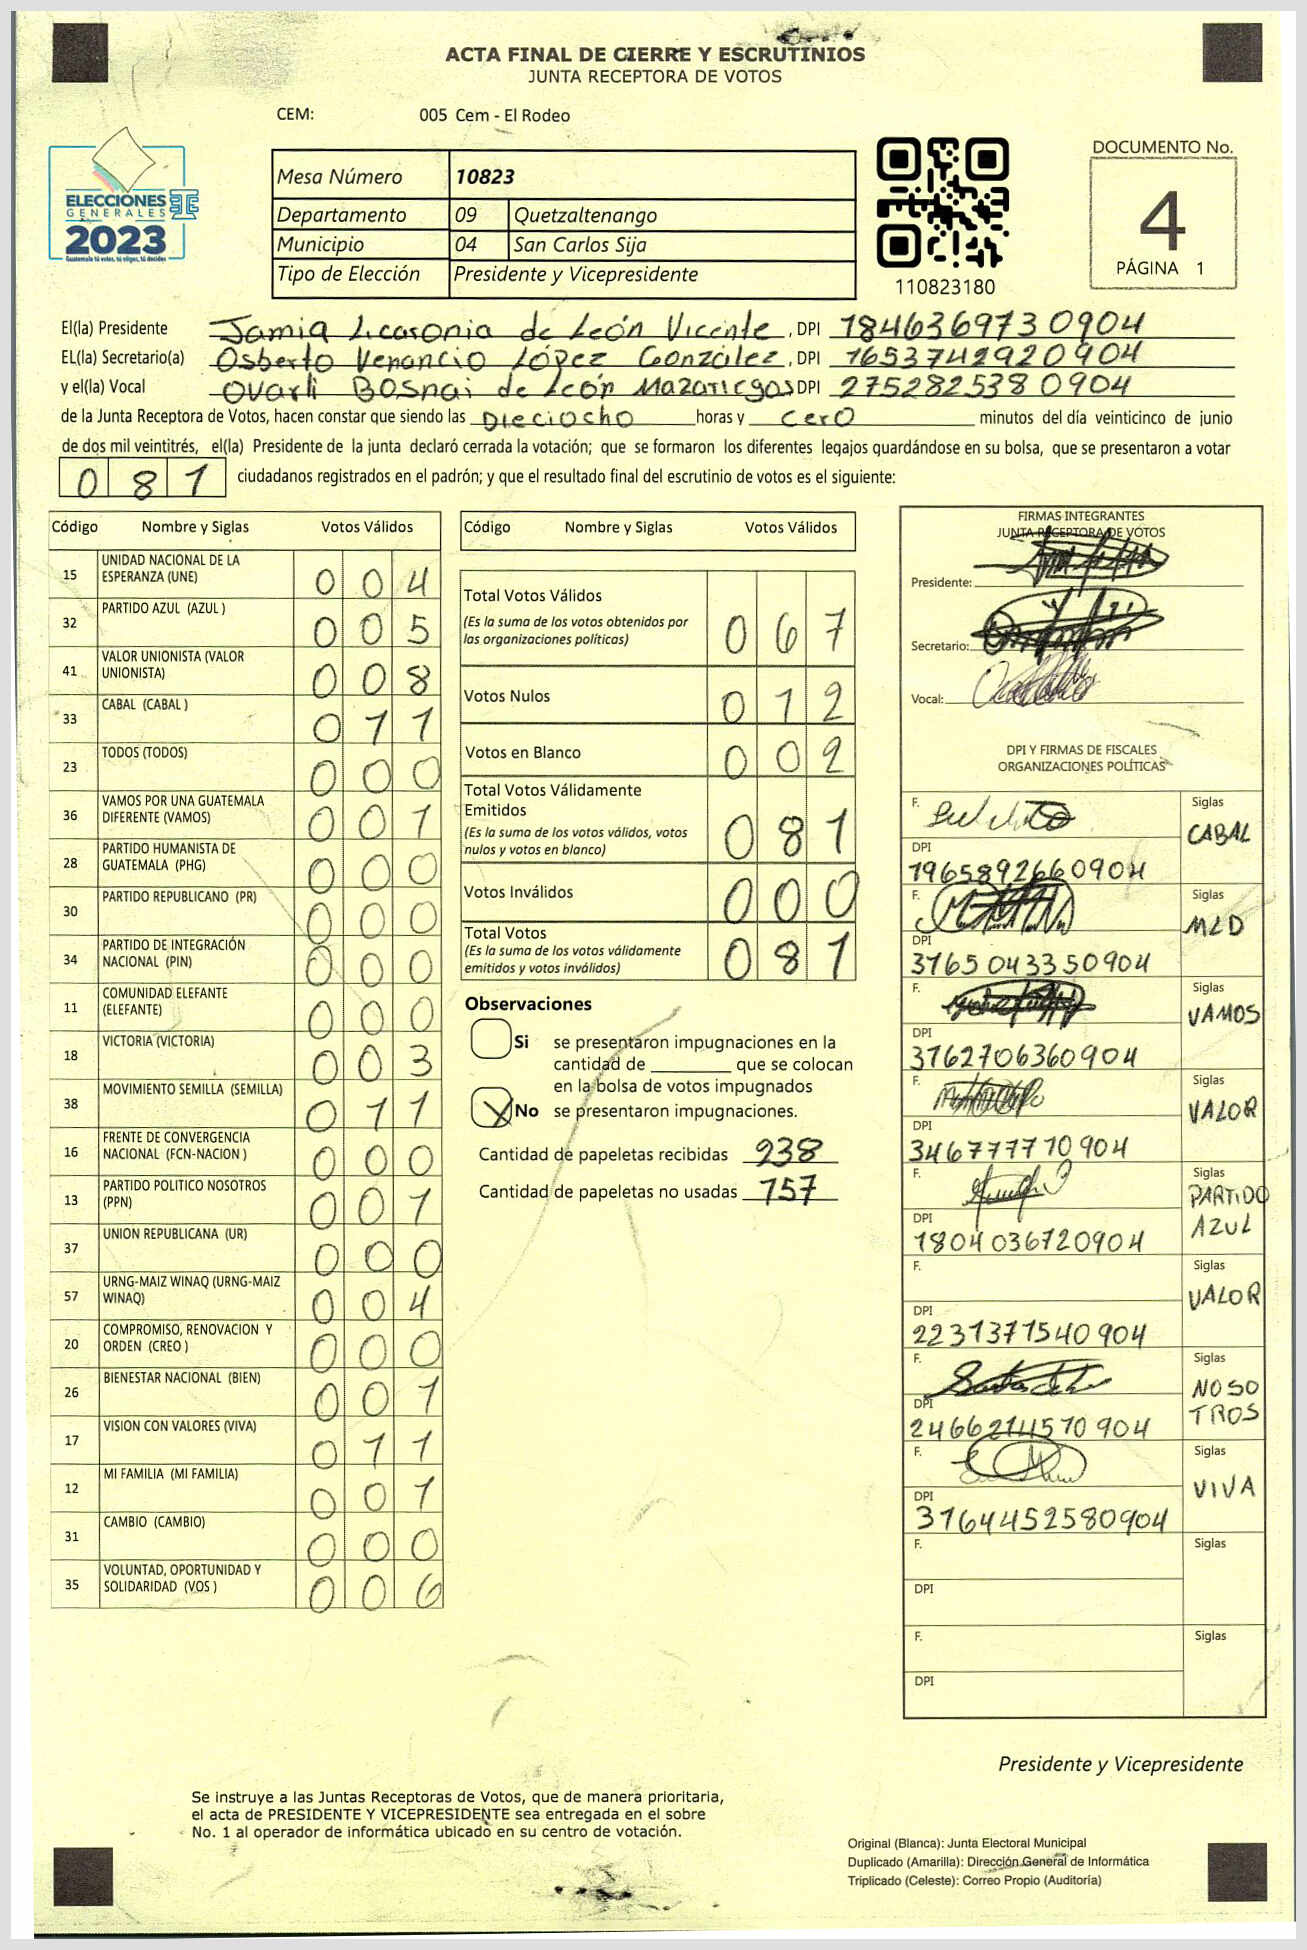 ACTA FINAL DE CIERRE Y ESCRUTINIOS
JUNTA RECEPTORA DE VOTOS
CEM: 005 Cem - El Rodeo
ELECCIONES
GENERALES
2023
Guatemala tú votas, tú eliges, tú decides
Mesa Número 10823
Departamento 09 Quetzaltenango
Municipio 04 San Carlos Sija
Tipo de Elección Presidente y Vicepresidente
110823180
DOCUMENTO No.
4
PÁGINA 1
El(la) Presidente Jamia Licasonia de León Vicente, DPI 1846369730904
EL(la) Secretario(a) Osberto Venancio López González, DPI 1653742920904
y el(la) Vocal Ovarli Bosnai de León Mazariegos DPI 2752825380904
de la Junta Receptora de Votos, hacen constar que siendo las Dieciocho horas y cero minutos del día veinticinco de junio
de dos mil veintitrés, el(la) Presidente de la junta declaró cerrada la votación; que se formaron los diferentes legajos guardándose en su bolsa, que se presentaron a votar
081 ciudadanos registrados en el padrón; y que el resultado final del escrutinio de votos es el siguiente:
Código Nombre y Siglas Votos Válidos
15 UNIDAD NACIONAL DE LA ESPERANZA (UNE) 004
32 PARTIDO AZUL (AZUL ) 005
41 VALOR UNIONISTA (VALOR UNIONISTA) 008
33 CABAL (CABAL ) 011
23 TODOS (TODOS) 000
36 VAMOS POR UNA GUATEMALA DIFERENTE (VAMOS) 001
28 PARTIDO HUMANISTA DE GUATEMALA (PHG) 000
30 PARTIDO REPUBLICANO (PR) 000
34 PARTIDO DE INTEGRACIÓN NACIONAL (PIN) 000
11 COMUNIDAD ELEFANTE (ELEFANTE) 000
18 VICTORIA (VICTORIA) 003
38 MOVIMIENTO SEMILLA (SEMILLA) 011
16 FRENTE DE CONVERGENCIA NACIONAL (FCN-NACION ) 000
13 PARTIDO POLITICO NOSOTROS (PPN) 001
37 UNION REPUBLICANA (UR) 000
57 URNG-MAIZ WINAQ (URNG-MAIZ WINAQ) 004
20 COMPROMISO, RENOVACION Y ORDEN (CREO ) 000
26 BIENESTAR NACIONAL (BIEN) 001
17 VISION CON VALORES (VIVA) 011
12 MI FAMILIA (MI FAMILIA) 001
31 CAMBIO (CAMBIO) 000
35 VOLUNTAD, OPORTUNIDAD Y SOLIDARIDAD (VOS ) 006
Código Nombre y Siglas Votos Válidos
Total Votos Válidos 067
(Es la suma de los votos obtenidos por
las organizaciones políticas)
Votos Nulos 012
Votos en Blanco 002
Total Votos Válidamente
Emitidos 081
(Es la suma de los votos válidos, votos
nulos y votos en blanco)
Votos Inválidos 000
Total Votos 081
(Es la suma de los votos válidamente
emitidos y votos inválidos)
Observaciones
Si se presentaron impugnaciones en la
cantidad de ________ que se colocan
en la bolsa de votos impugnados
X No se presentaron impugnaciones.
Cantidad de papeletas recibidas 238
Cantidad de papeletas no usadas 157
FIRMAS INTEGRANTES
JUNTA RECEPTORA DE VOTOS
Presidente:
Secretario:
Vocal:
DPI Y FIRMAS DE FISCALES
ORGANIZACIONES POLÍTICAS
F. Siglas CABAL
DPI 1965892660904
F. Siglas MLD
DPI 3165043350904
F. Siglas VAMOS
DPI 3162706360904
F. Siglas VALOR
DPI 346777710904
F. Siglas PARTIDO AZUL
DPI 1804036720904
F. Siglas VALOR
DPI 2231371540904
F. Siglas NOSOTROS
DPI 2466214570904
F. Siglas VIVA
DPI 3164452580904
F. Siglas
DPI
F. Siglas
DPI
Presidente y Vicepresidente
Se instruye a las Juntas Receptoras de Votos, que de manera prioritaria,
el acta de PRESIDENTE Y VICEPRESIDENTE sea entregada en el sobre
No. 1 al operador de informática ubicado en su centro de votación.
Original (Blanca): Junta Electoral Municipal
Duplicado (Amarilla): Dirección General de Informática
Triplicado (Celeste): Correo Propio (Auditoría)